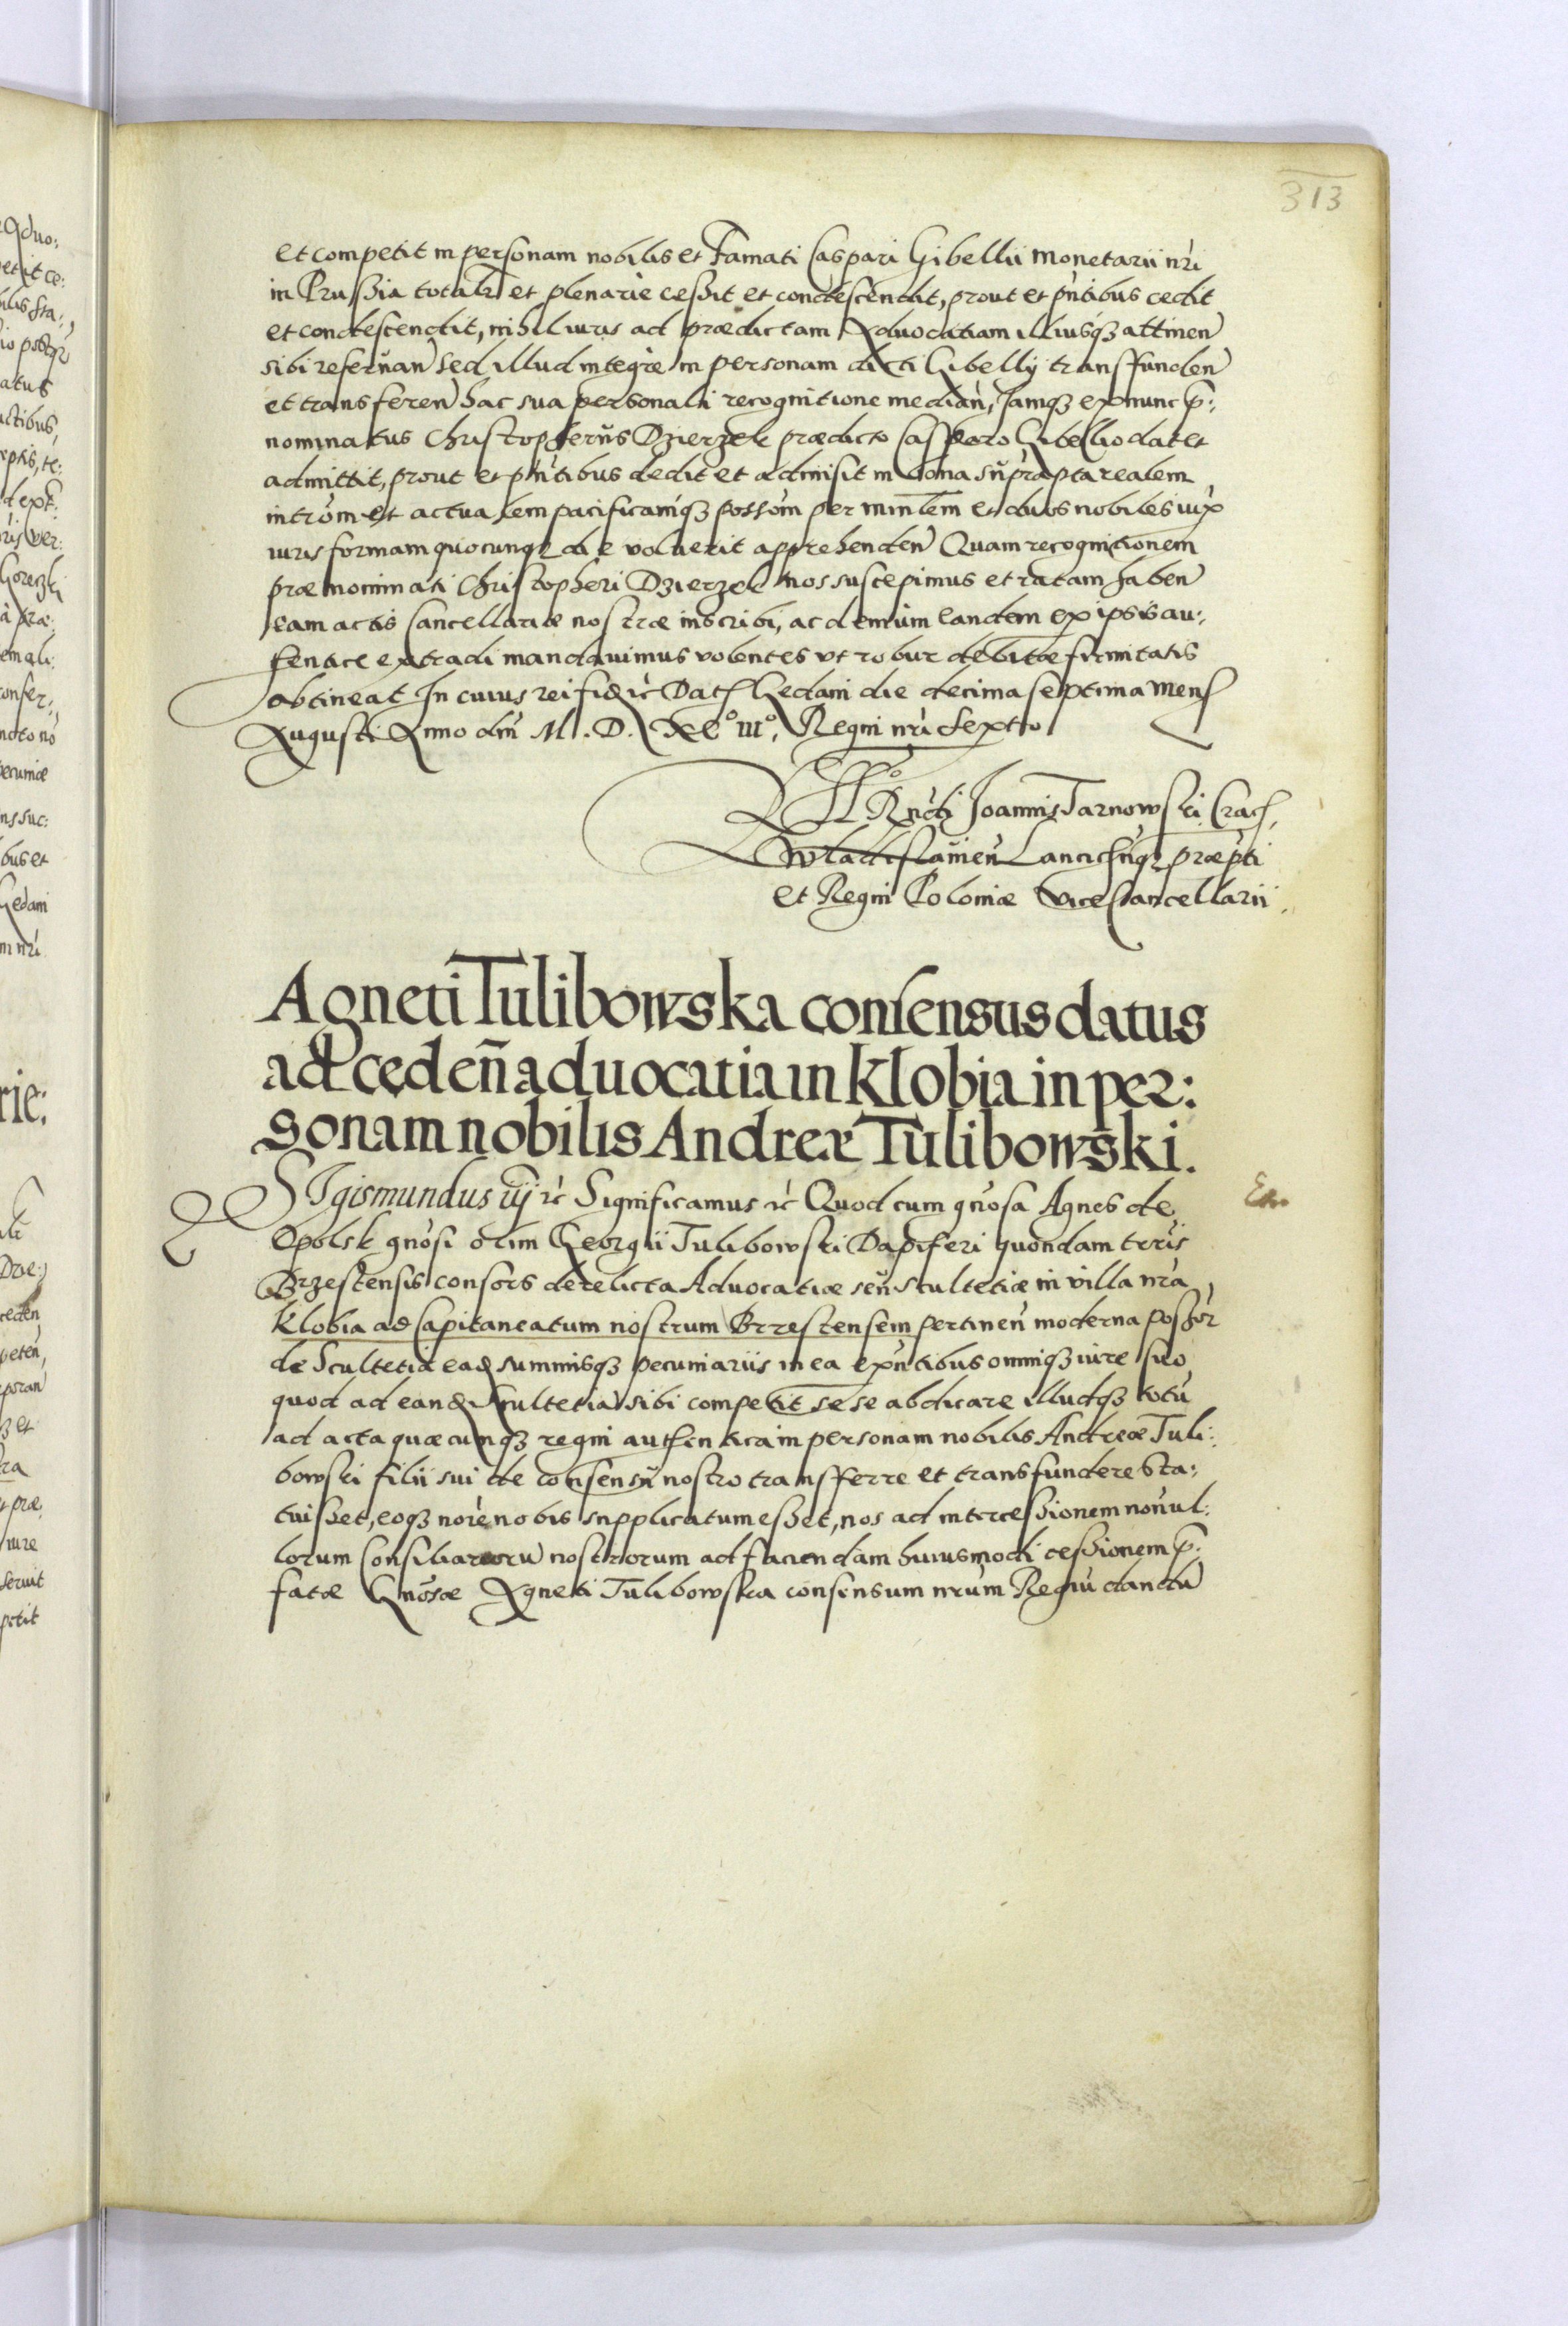 313
et competit in personam nobilis et Famati Caspari Gibellii Monetarii nri
in Prussia totalr et plenarie cessit et condescendit, prout et pntibus cedit
et condescendit, nihil iuris ad prædictam Advocatiam illiusq3 attinen
sibi reservan sed illud integre in personam dicti Gibellÿ transfunden
et transferen hac sua personali recognitione median, Jamq3 ex nunc p:
nominatus Christopherus Dzierzek prædicto Casparo Gibellio dat et
admittit, prout et pntibus dedit et admisit in bona supra pta realem
introm et actualem pacificamq3 possom per minlem et duos nobiles iux
iuris formam quocunq3 die voluerit apprehenden Quam recognitionem
prænominati Christopheri Dzierzek nos suscepimus et ratam haben
eam actis Cancellariæ nostræ inscribi, ac demum eandem ex ipsis au:
tentice extradi mandavimus volentes ut robur debitæ firmitatis
obtineat In cuius rei fid rc Dat Gedani die decima septima mens
Augusti Anno dni M. D. XCo IIIo, Regni nri sexto
Rndi Joannis Tarnowski Crac,
Wladislavien Lancicnq3 præpti
et Regni Poloniæ ViceCancellarii
Agneti Tulibowska consensus datus
ad cedeñ aduocatia in Klobia in per:
sonam nobilis Andreæ Tulibowski.
SIgismundus iij rc Significamus rc Quod cum gnosa Agnes de
Opolsk gnosi olim Georgii Tulibowski Dapiferi quondam trris
Brzestensis consors derelicta Advocatiæ seu Scultetiæ in villa nra
Klobia ad Capitaneatum nostrum Brzestensem pertinen moderna possor
de Scultetia ead summisq3 pecuniariis in ea exntibus omniq3 iure suo
quod ad eand Scultetia sibi competit sese abdicare illudq3 totu
ad acta quæcunq3 regni authentica in personam nobilis Andreæ Tuli:
bowski filii sui de consensu nostro transferre et transfundere sta:
tuisset, eoq3 noie nobis supplicatum esset, nos ad intercessionem nonul:
lorum Consiliarioru nostrorum ad faciendam huiusmodi cessionem p:
fatæ Gnosæ Agneti Tulibowska consensum nrum Regiu dandu